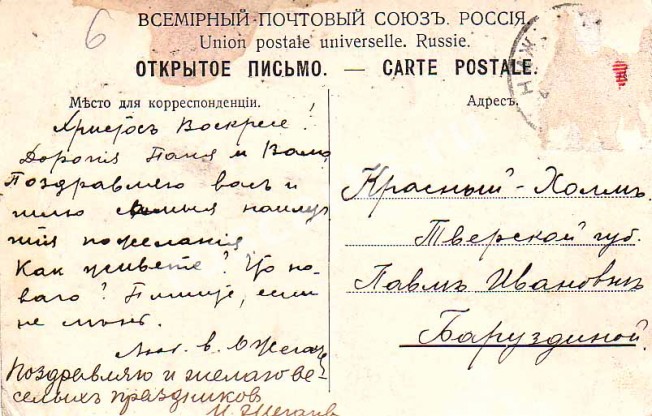 ВСЕМІРНЫЙ ПОЧТОВЫЙ СОЮЗЪ. РОССІЯ.
Union postale universelle. Russie.
ОТКРЫТОЕ ПИСЬМО. — CARTE POSTALE.
Мѣсто для корреспонденціи.
Христосъ Воскресе!
Дорогія Паня и Валя
Поздравляю васъ и
шлю самыя наилуч
шія пожеланія
Какъ живете? Что но-
ваго? Пишите, если
не лѣнь.
Люб. в.
Поздравляю и желаю ве-
селыхъ праздниковъ
Адресъ.
Красный-Холмъ
Тверской губ.
Павлѣ Ивановнѣ
Баруздиной.
6